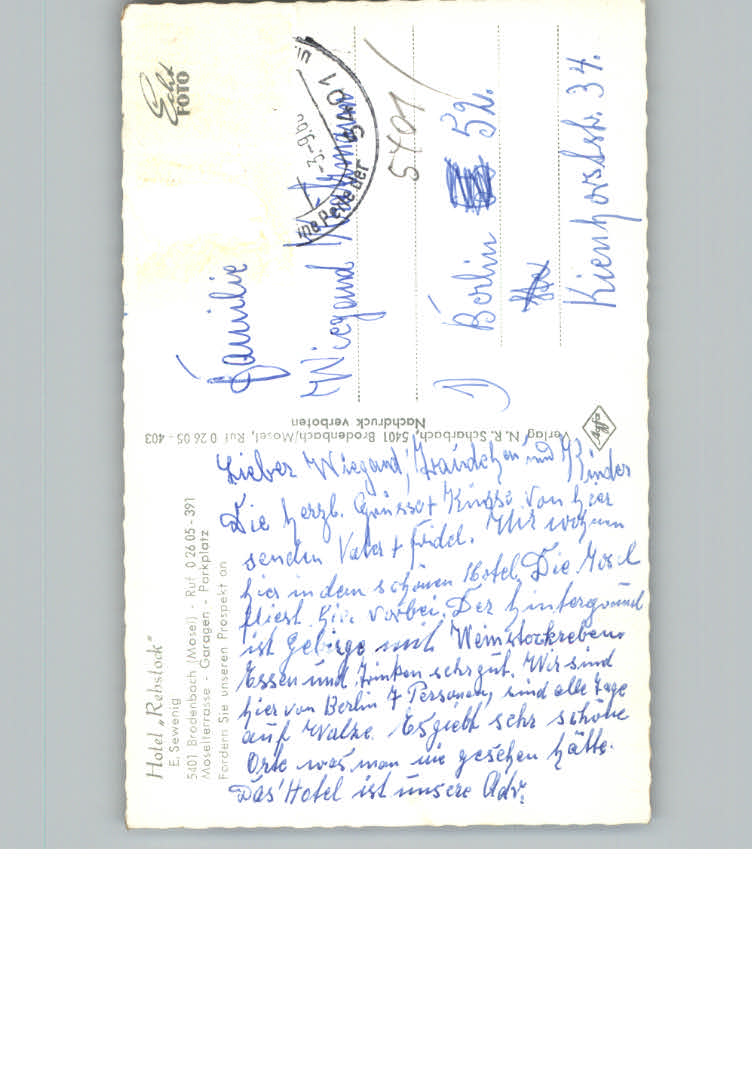 Hotel „Rebstock"
E. Sewenig
5401 Brodenbach (Mosel) - Ruf 0 26 05 - 391
Moselterrasse - Garagen - Parkplatz
Fordern Sie unseren Prospekt an
Lieber Wiegand, Traudchen und Kinder
Die herzl. Grüsse + Küsse von hier
senden Vater + Friedel. Wir wohnen
hier in dem schönen Hotel. Die Mosel
fliest hir vorbei. Der Hintergrund
ist Gebirge mit Weinstockreben.
Essen und Trinken sehr gut. Wir sind
hier von Berlin 7 Personen, sind alle Tage
auf Walze. Es giebt sehr schöne
Orte was man nie gesehen hätte.
Das Hotel ist unsere Adr.
Verlag N. R. Scharbach, 5401 Brodenbach/Mosel, Ruf 0 26 05 - 403
Nachdruck verboten
Agfa
Echt
FOTO
5401
-3.-9.6
ine Perle der
Familie
Wiegand
5401
1 Berlin 52.
Kienhorststr. 34.